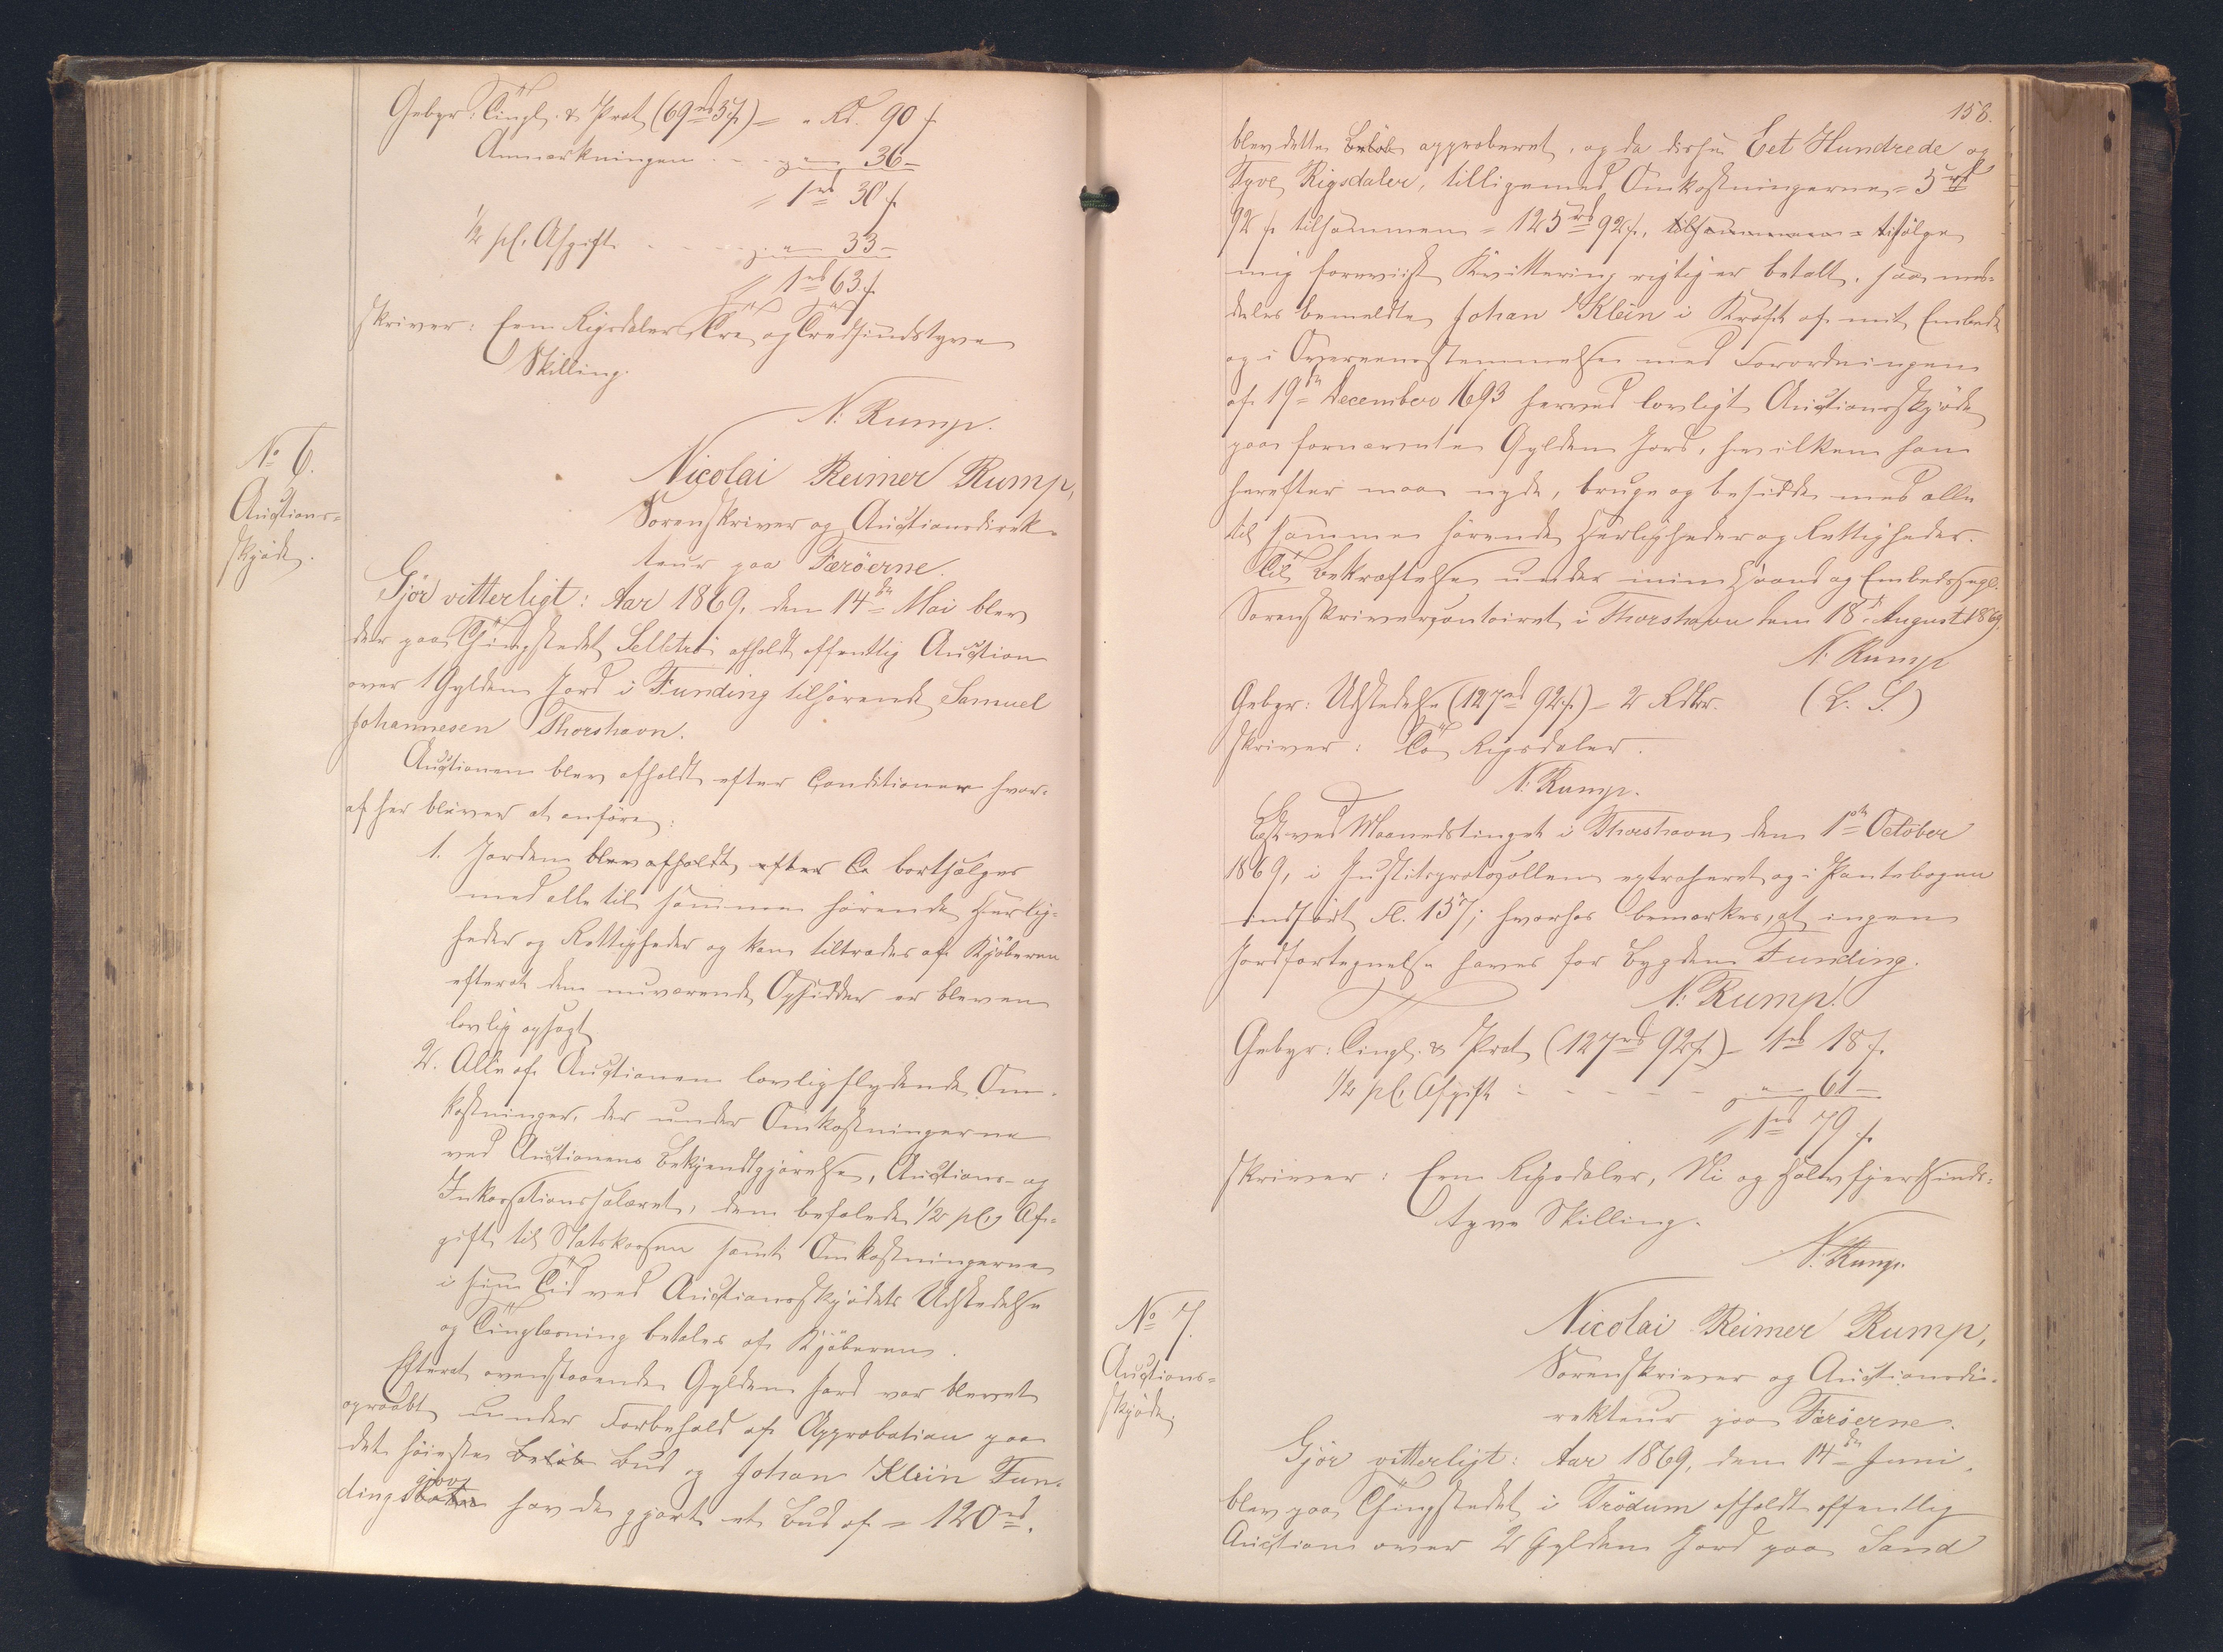 Gebyr: Tingl. & Prot. (69rd 37f) = " Rd. 90 f
Anmærkningen . . . " " 36 =
= 1rd 30 f.
1/2 pCt. Afgift . . . " 33 =
= 1rd 63 f.
skriver: Een Rigsdaler, Tre og Tredsindstyve
Skilling.
N: Rump.
No 6.
Auctions=
skjøde.
Nicolai Reimer Rump,
Sorenskriver og Auctionsdirek-
teur paa Færöerne.
Gjör vitterligt: Aar 1869, den 14de Mai blev
der paa Thingstedet Selletræ afholdt offentlig Auction
over 1 Gylden Jord i Funding tilhörende Samuel
Johannesen Thorshavn.
Auctionen blev afholdt efter Conditioner hvor-
af her bliver at anføre:
1. Jorden blev afholdt efter Co bortsælges
med alle til sammen hörende Herlig-
heder og Rettigheder og kan tiltrædes af Kjöberen
efterat den nuværende Opsidder er bleven
lovlig opsagt.
2. Alle af Auctionen lovlig flydende Om-
kostninger, der under Omkostningerne
ved Auctionens Bekjendtgjørelse, Auctions- og
Inkassationssalairet, den befalede 1/2 pCt. Af-
gift til Statskassen samt Omkostningerne
i sin Tid ved Auctionsskjødets Udstedelse
og Tinglæsning betales af Kjöberen.
Efterat ovenstaaende Gylden Jord var blevet
opraabt under Forbehold af Approbation paa
det höieste Belöb Bud og Johan Klein Fun-
dingsbotn giov havde gjort et Bud af = 120rd.
158.
blev dette Belöb approberet, og da disse Eet Hundrede og
Tyve Rigsdaler, tilligemed Omkostningerne = 5rd
92 f tilsammen = 125rd 92f, tilsammen = tifölge
mig foreviist Kvittering rigtig er betalt, saa med-
deles bemeldte Johan Klein i Kraft af mit Embede
og i Overeensstemmelse med Forordningen
af 19de December 1693 herved lovligt Auctionsskjøde
paa fornævnte Gylden Jord, hvilken han
herefter maa nyde, bruge og besidde med alle
til sammen hörende Herligheder og Rettigheder.
Til Bekræftelse under min Haand og Embedssegl.
Sorenskrivercontoiret i Thorshavn den 18de August 1869.
N. Rump
Gebyr: Udstedelse (127rd 92f) = 2 Rdlr. (L. S.)
skriver: To Rigsdaler.
N. Rump.
Læst ved Maanedstinget i Thorshavn den 1ste October
1869, i Justitsprotocollen extraheret og i Pantebogen
indført Fl. 157; hvorhos bemærkes, at ingen
Jordfortegnelse haves for Bygden Funding.
N: Rump.
Gebyr: Tingl. & Prot. (127rd 92f) = 1rd 18 f.
1/2 pCt. Afgift : - - - - - " 61 =
= 1rd 79 f.
skriver: Een Rigsdaler, Ni og Halvfjerdsinds-
tyve Skilling.
N. Rump.
No 7.
Auctions=
skjøde.
Nicolai Reimer Rump,
Sorenskriver og Auctionsdi-
rekteur paa Færöerne.
Gjör vitterligt: Aar 1869, den 14de Juni,
blev paa Thingstedet i Trödum afholdt offentlig
Auction over 2 Gylden Jord paa Sand